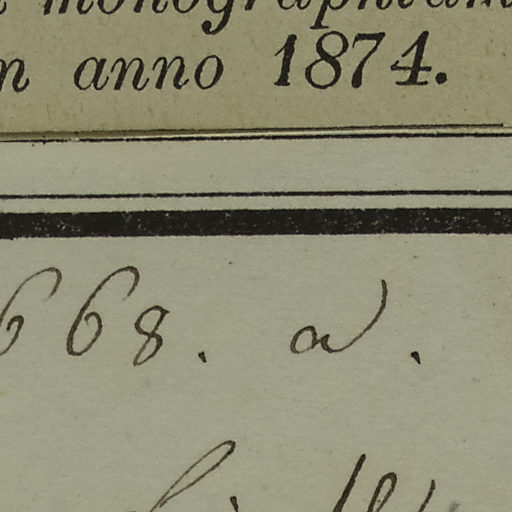 monographiam
anno 1874.
668. a.